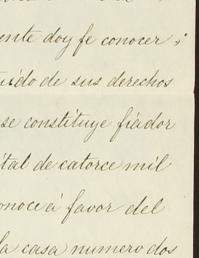 ente doy fe conocer;
uido de sus derechos
se constituye fiador
ital de catorce mil
onoce á favor del
la casa numero dos